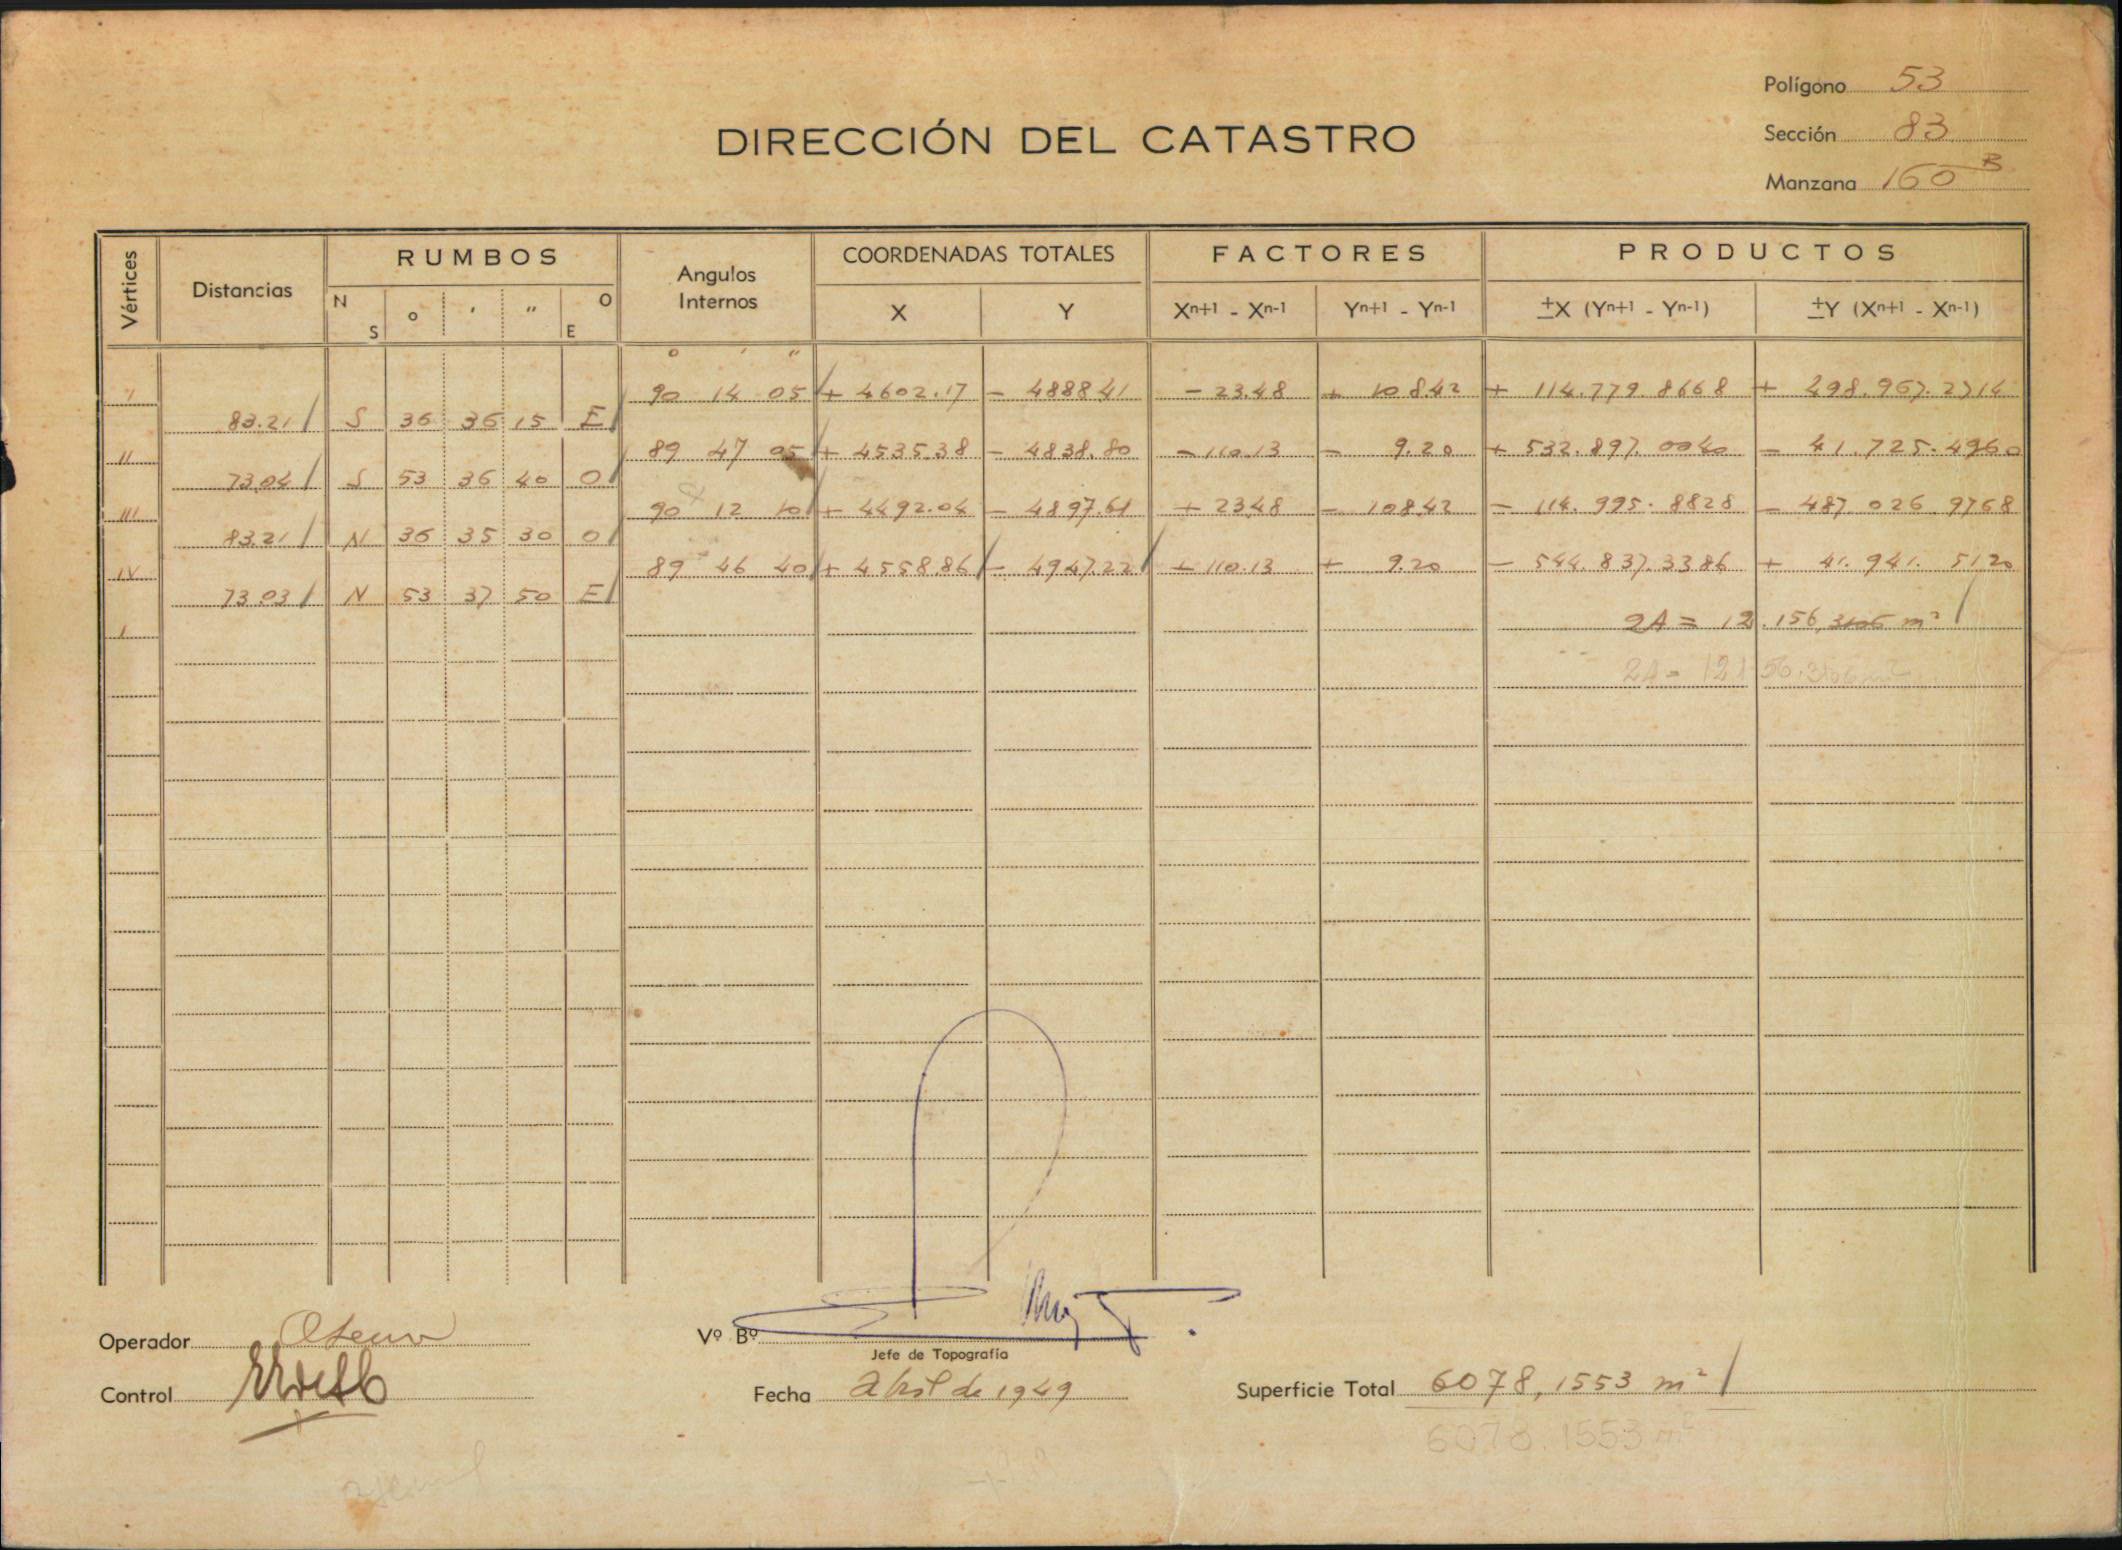 Polígono 53
Sección 83
Manzana 160 B
DIRECCIÓN DEL CATASTRO
Vértices Distancias RUMBOS Angulos Internos COORDENADAS TOTALES FACTORES PRODUCTOS
N S ° ' " O E X Y Xn+1 - Xn-1 Yn+1 - Yn-1 ±X (Yn+1 - Yn-1) ±Y (Xn+1 - Xn-1)
° ' "
I 90 14 05 + 4602.17 - 4888.41 - 23.48 + 108.42 + 114.779.8668 + 498.967.2714
83.21 S 36 36 15 E
II 89 47 05 + 4535.38 - 4838.80 - 110.13 - 9.20 + 532.897.0440 - 41.725.4960
73.04 S 53 36 40 O
III 90 12 10 + 4492.04 - 4897.61 + 23.48 - 108.42 - 114.995.8828 - 487.026.9768
83.21 N 36 35 30 O
IV 89 46 40 + 4558.86 - 4947.22 + 110.13 + 9.20 - 544.837.3386 + 41.941.5120
73.03 N 53 37 50 E
I 2A = 12.156,3106 m²
2A = 12156.3106 m²
Operador
Vº Bº
Jefe de Topografía
Control
Fecha Abril de 1949
Superficie Total 6078,1553 m²
6078.1553 m²